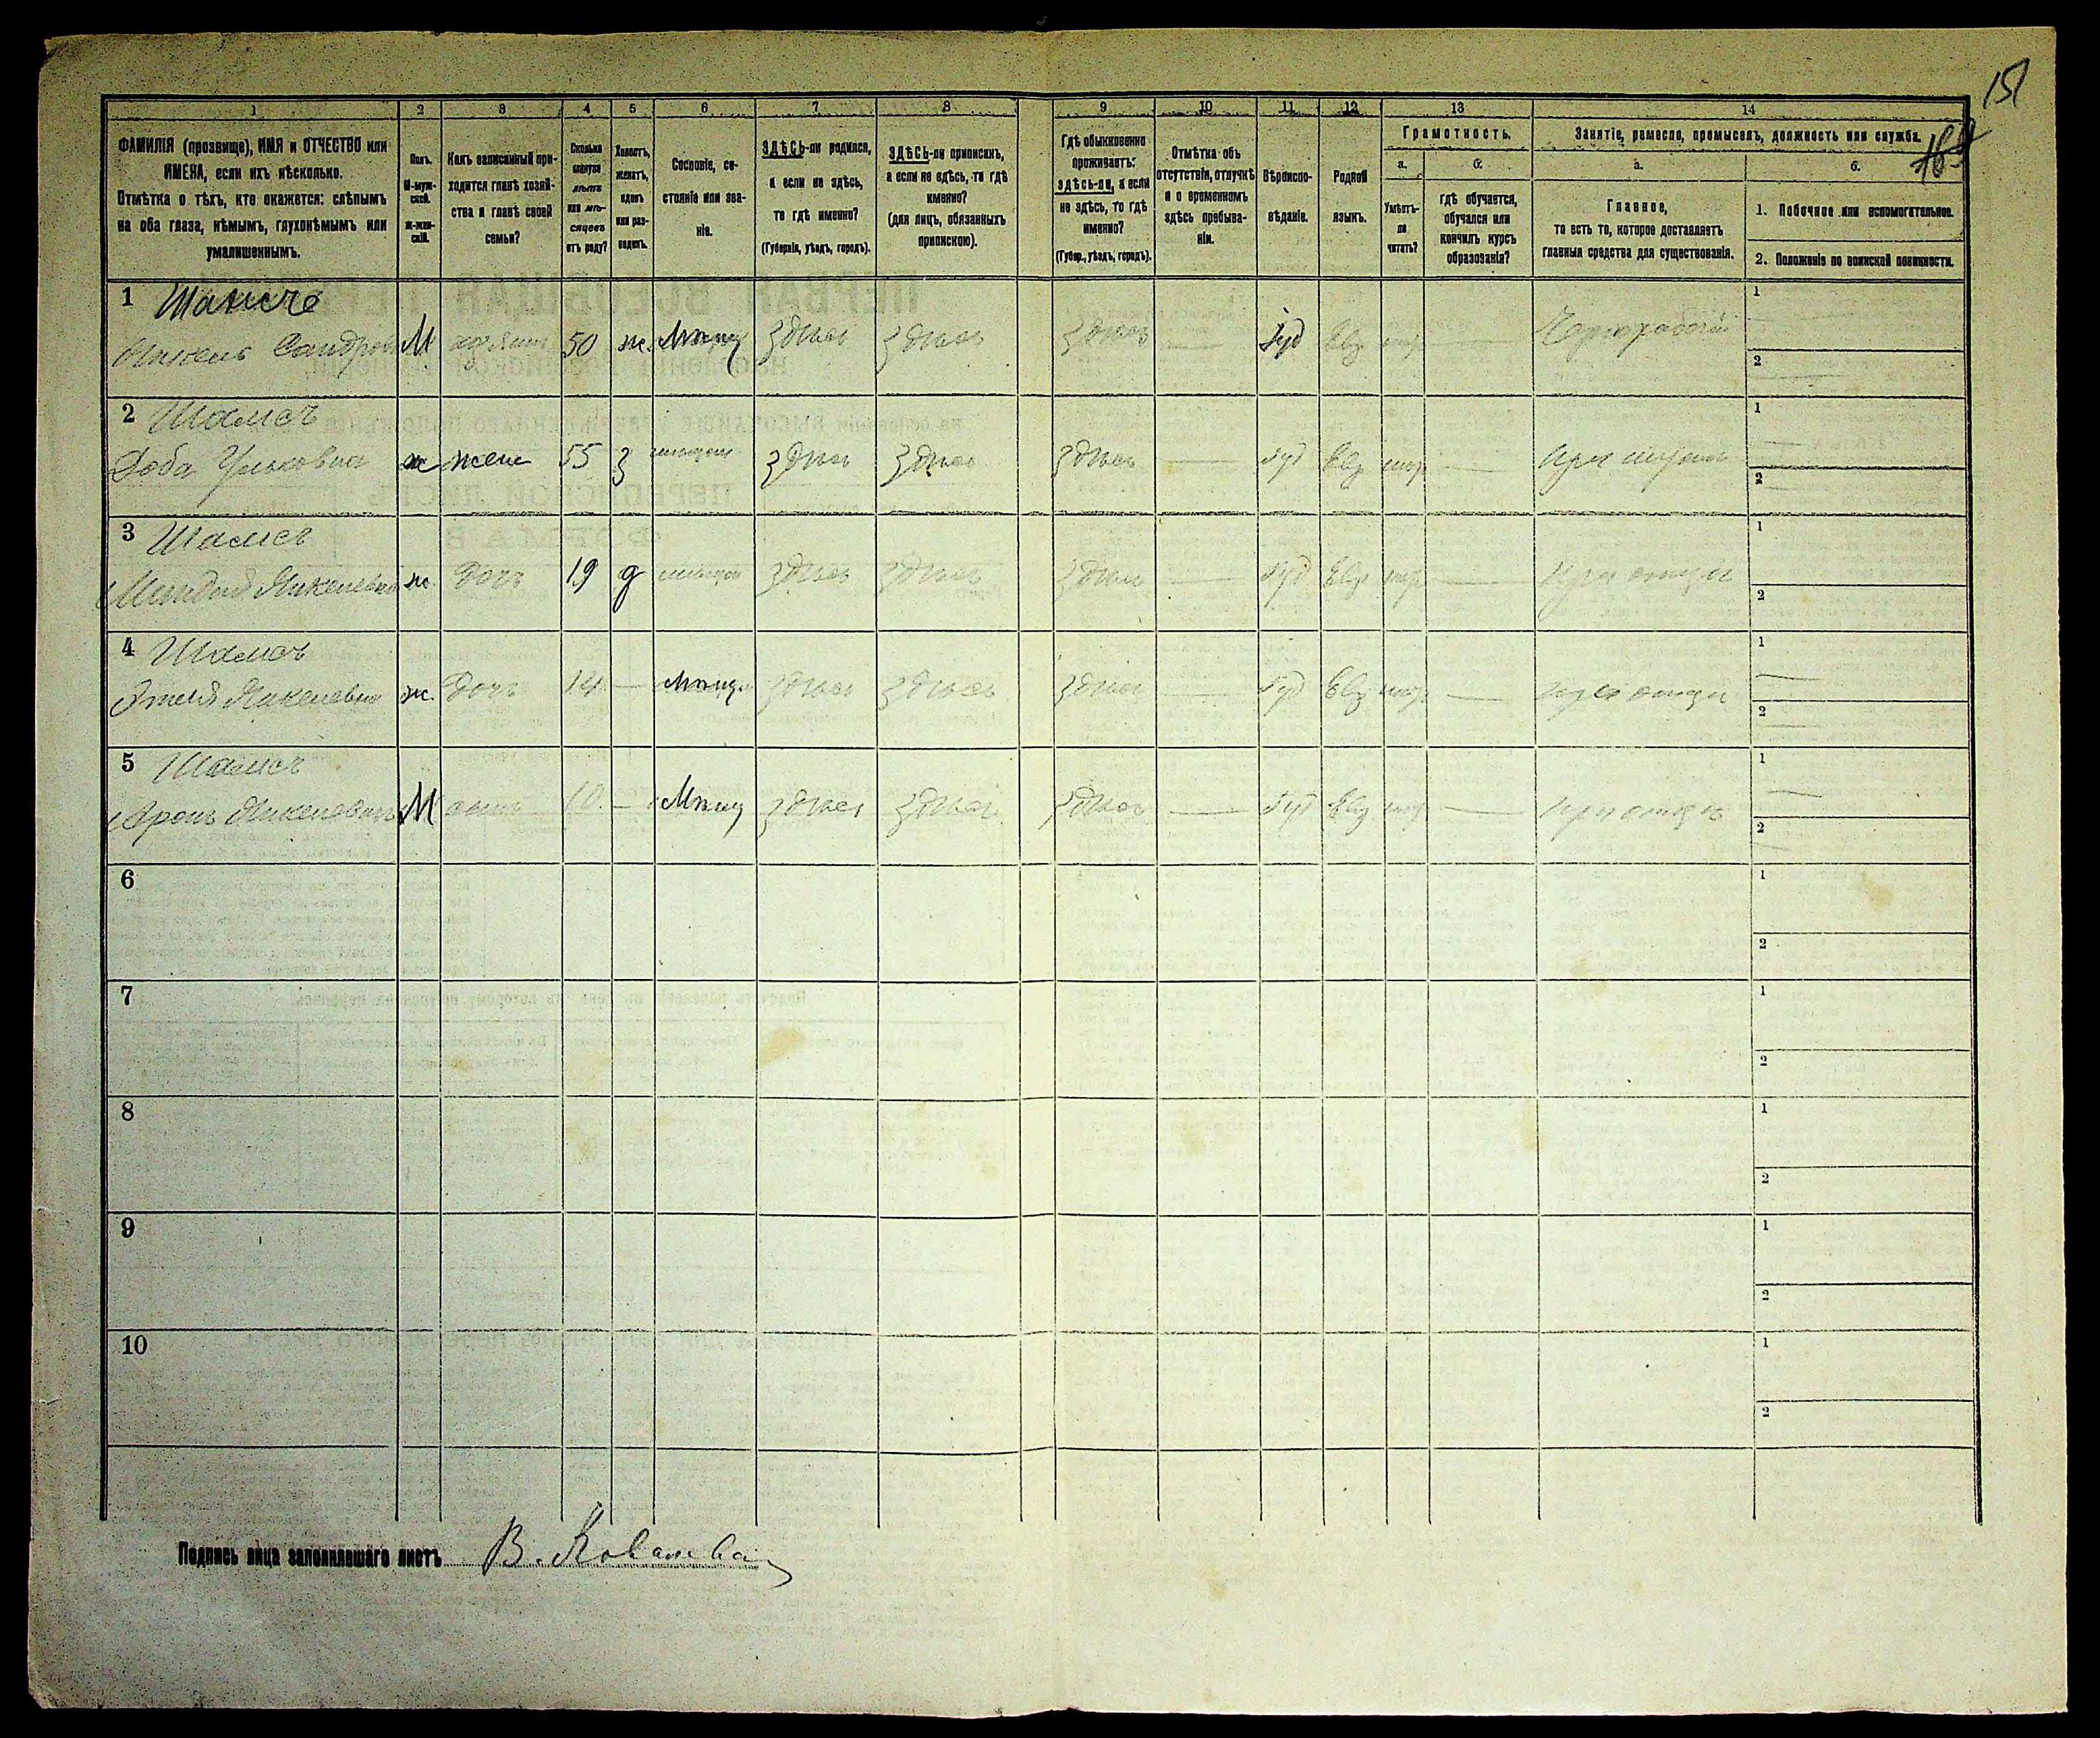 151
1 2 3 4 5 6 7 8 9 10 11 12 13 14
ФАМИЛІЯ (прозвище), ИМЯ и ОТЧЕСТВО или
ИМЕНА, если ихъ нѣсколько.
Отмѣтка о тѣхъ, кто окажется: слѣпымъ
на оба глаза, нѣмымъ, глухонѣмымъ или
умалишеннымъ.
Полъ.
М-муж-
ской.
ж-жен-
скій.
Какъ записанный при-
ходится главѣ хозяй-
ства и главѣ своей
семьи?
Сколько
минуло
лѣтъ
или мѣ-
сяцевъ
отъ роду?
Холостъ,
женатъ,
вдовъ
или раз-
веденъ.
Сословіе, со-
стояніе или зва-
ніе.
ЗДѢСЬ-ли родился,
а если не здѣсь,
то гдѣ именно?
(Губернія, уѣздъ, городъ).
ЗДѢСЬ-ли приписанъ,
а если не здѣсь, то гдѣ
именно?
(для лицъ, обязанныхъ
припискою).
Гдѣ обыкновенно
проживаетъ:
здѣсь-ли, а если
не здѣсь, то гдѣ
именно?
(Губер., уѣздъ, городъ).
Отмѣтка объ
отсутствіи, отлучкѣ
и о временномъ
здѣсь пребыва-
ніи.
Вѣроиспо-
вѣданіе.
Родной
языкъ.
Грамотность.
а.
Умѣетъ-
ли
читать?
б.
гдѣ обучается,
обучался или
кончилъ курсъ
образованія?
Занятіе, ремесло, промыселъ, должность или служба.
а.
Главное,
то есть то, которое доставляетъ
главныя средства для существованія.
б.
1. Побочное или вспомогательное.
2. Положеніе по воинской повинности.
1 Шамесъ
М 50 ж. Мѣщ здѣсь здѣсь здѣсь — Іуд Евр — Чернорабочій 1 2
2 Шамесъ
Доба ж жена 55 з здѣсь здѣсь здѣсь — Іуд Евр — 1 2
3 Шамесъ
ж дочь 19 д здѣсь здѣсь здѣсь — Іуд Евр — при отцѣ 1 2
4 Шамесъ
ж. дочь 14 — Мѣщ. здѣсь здѣсь здѣсь — Іуд Евр — при отцѣ 1 2
5 Шамесъ
М сынъ 10 — Мѣщ здѣсь здѣсь здѣсь — Іуд Евр — при отцѣ 1 2
6 1 2
7 1 2
8 1 2
9 1 2
10 1 2
Подпись лица заполнявшаго листъ